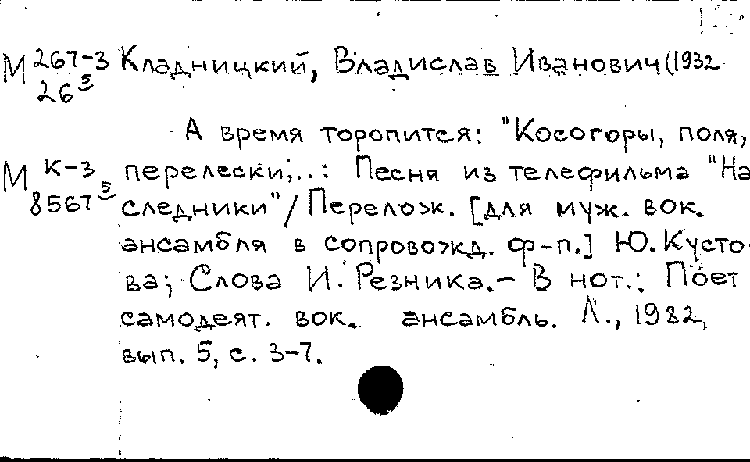 М 267-3 Кладницкий, Владислав Иванович (1932
26 5
А время торопится: "Косогоры, поля,
М К-3 перелески;..: Песня из телефильма "На
8567 5 следники" / Перелож. [для муж. вок.
ансамбля в сопровожд. ф-п.] Ю. Кусто-
ва; Слова И. Резника. - В нот.: Поет
самодеят. вок. ансамбль. Л., 1982,
вып. 5, с. 3-7.